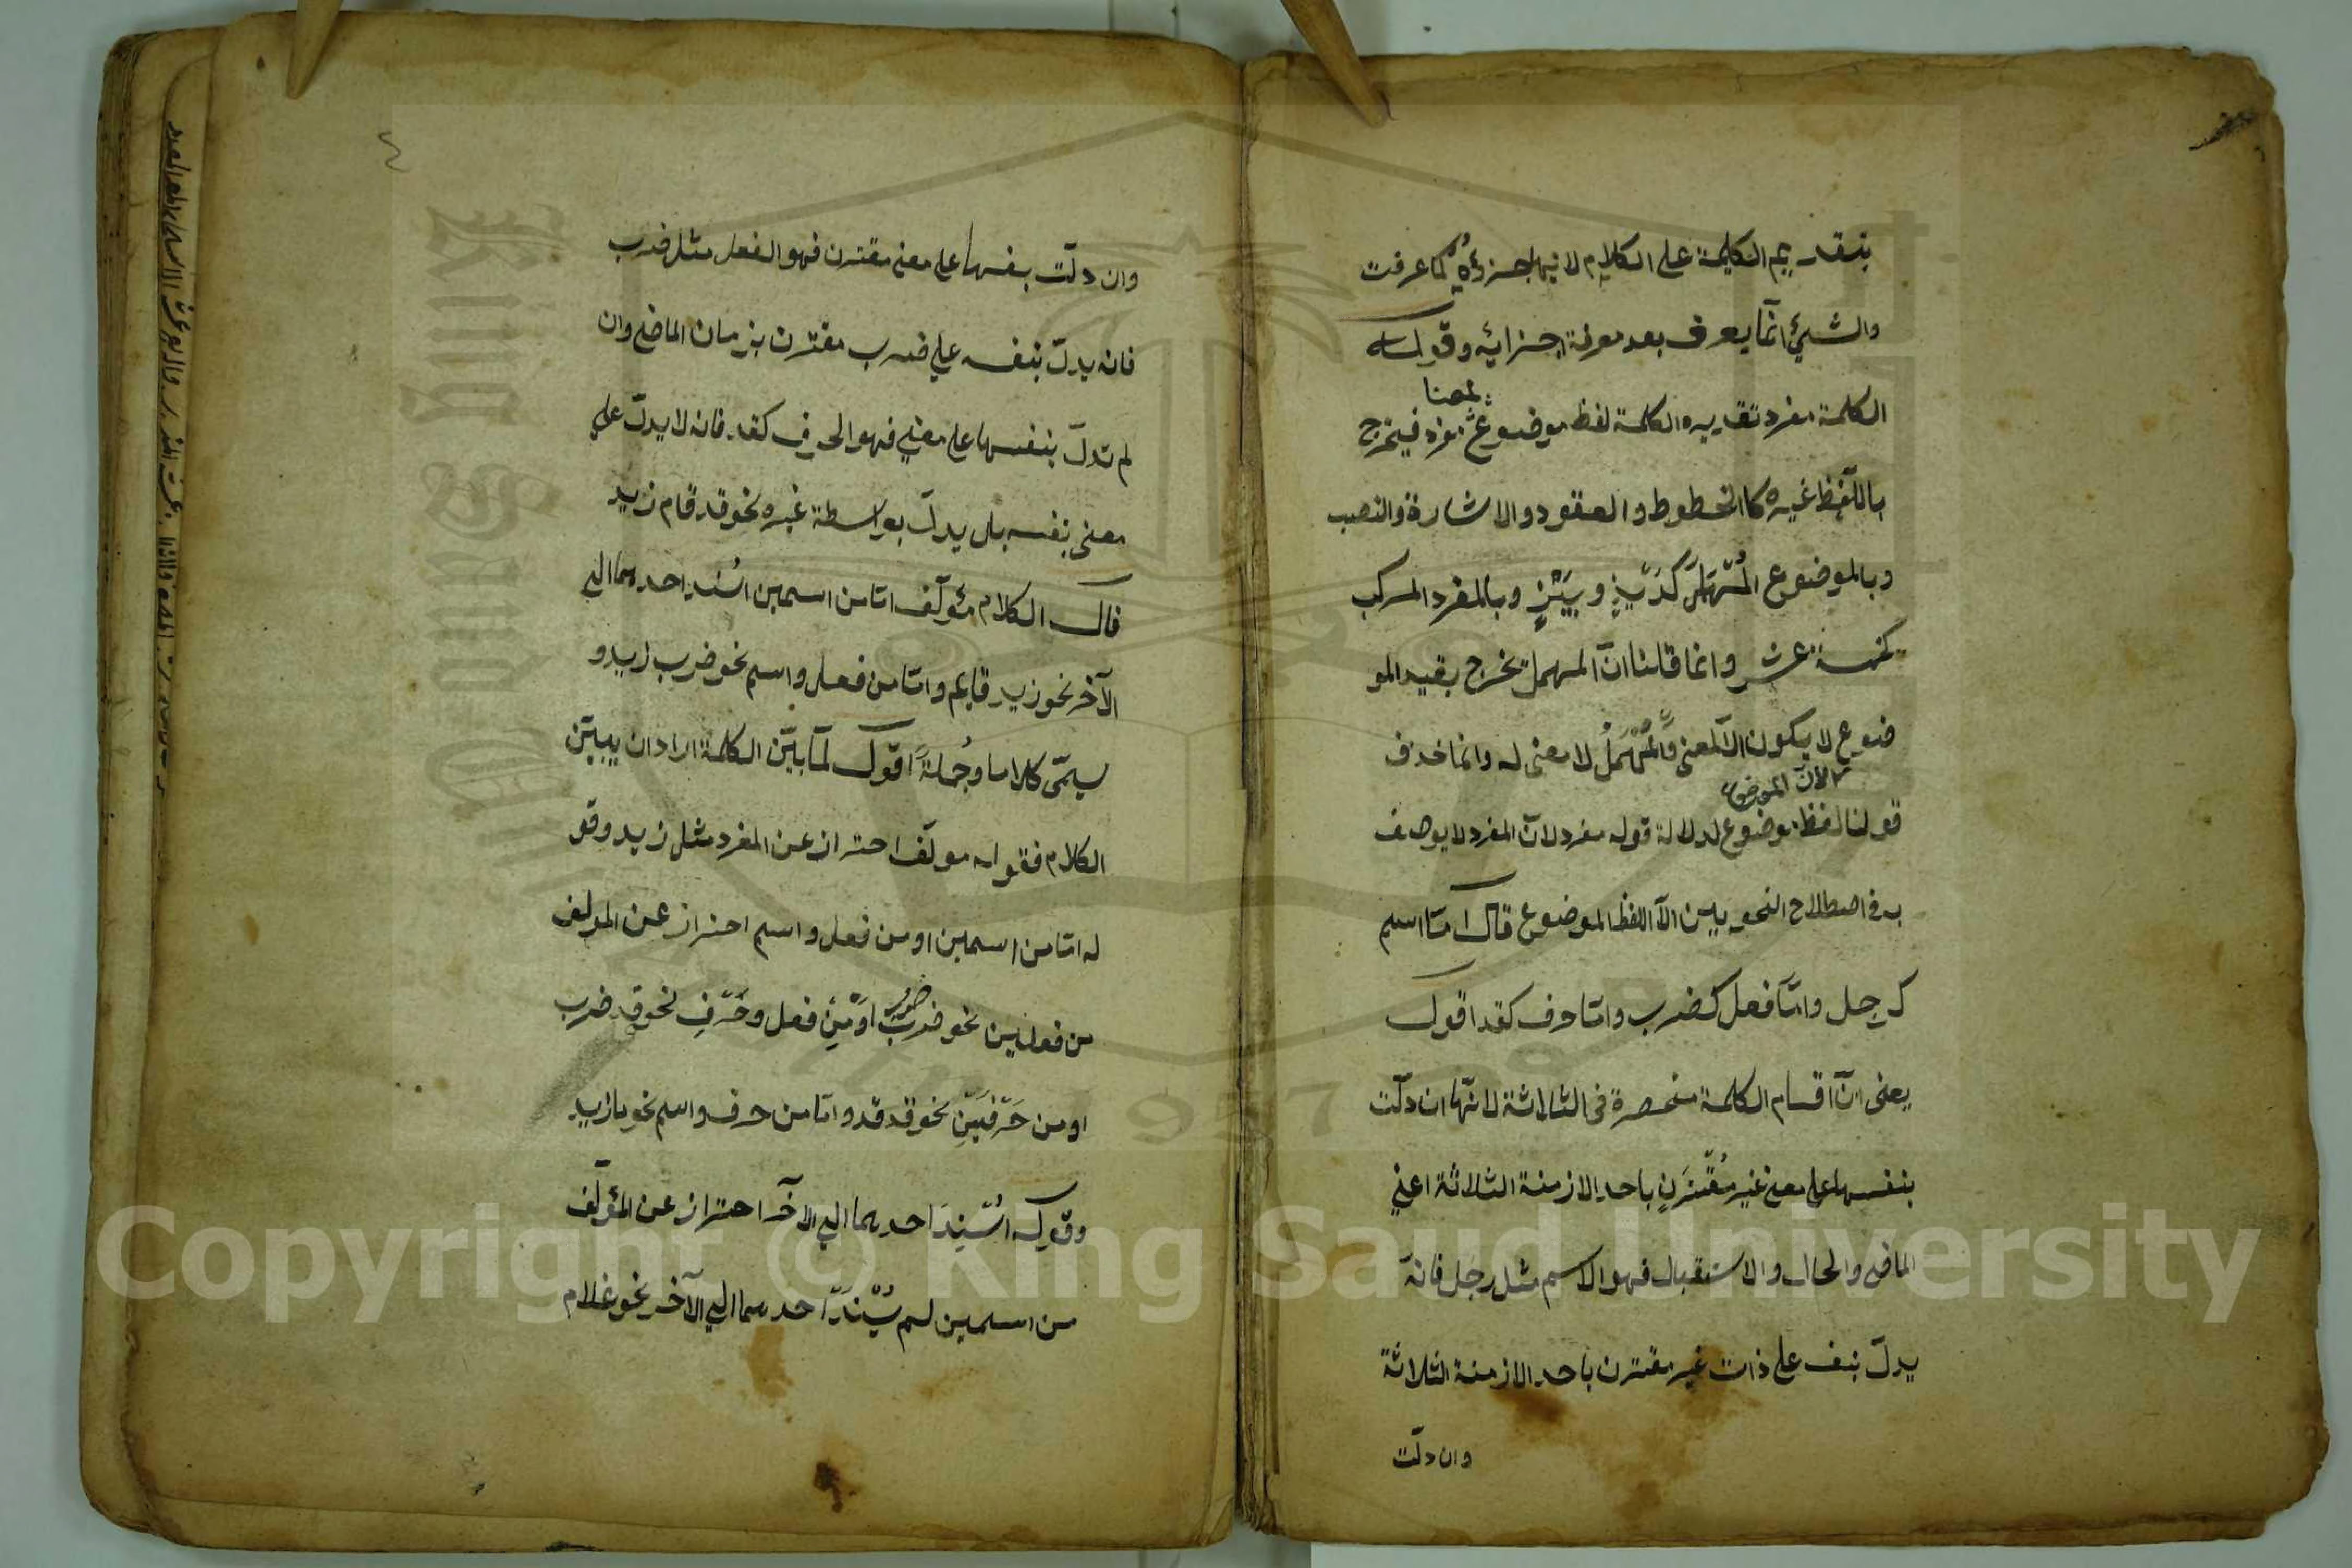 بتقديم الكلمة على الكلام لانها جزؤه كما عرفت
والشئ انما يعرف بعد معرفة اجزائه وقوله
الكلمة مفرد تقديره الكلمة لفظ موضوع لمعنا مفرد فيخرج
باللفظ غيره كالخطوط والعقود والاشارة والنصب
وبالموضوع المُهْمَل كَدَيْزٍ وبَيْزٍ وبالمفرد المركب
كخمسة عشر وانما قلنا انّ المهمل تخرج بقيد المو
ضوع لا يكون الّا لمعنى والمُهْمَلُ لا معنى له وانما حذف
لان الموضوع
قولنا لفظ موضوع لدلالة قوله مفرد لانّ المفرد لا يوصف
به في اصطلاح النحويين الّا اللفظ الموضوع قال امّا اسم
كرجل وامّا فعل كضرب وامّا حرف كقد اقول
يعنى انّ اقسام الكلمة منحصرة فى الثلاثة لانّها ان دلّت
بنفسها على معنى غير مُقْتَرَنٍ باحد الازمنة الثلاثة اعني
الماضى والحال والاستقبال فهو الاسم مثل رجل فانّه
يدلّ بنفسه على ذات غير مقترن باحد الازمنة الثلاثة
وان دلّت
٤
وان دلّت بنفسها على معنى مقترن فهو الفعل مثل ضرب
فانه يدلّ بنفسه على ضرب مقترن بزمان الماضى وان
لم تدلّ بنفسها على معنى فهو الحرف كقد فانه لا يدلّ على
معنى بنفسه بل يدلّ بواسطة غيره نحو قد قام زيد
قال الكلام مؤلّف امّا من اسمين اُسْند احدهما الى
الآخر نحو زيد قايم وامّا من فعل واسم نحو ضرب زيد و
يسمّى كلاما وجُملةً اقول لمّا بيّن الكلمة اراد ان يبيّن
الكلام فقوله مولّف احتراز عن المفرد مثل زيد وقو
له امّا من اسمين او من فعل واسم احتراز عن المولف
من فعلين نحو ضرب ضرب اوْ مِنْ فعل وحَرْفٍ نحو قد ضرب
او من حَرْفَيْن نحو قد قد وامّا من حرف واسم نحو يا زيد
وقوله اُسْنِدَ احدهما الى الآخر احتراز عن المؤلّف
من اسمين لم يُسْنَدْ احدهما الى الآخر نحو غلام
Copyright © King Saud University
King Saud University
1957